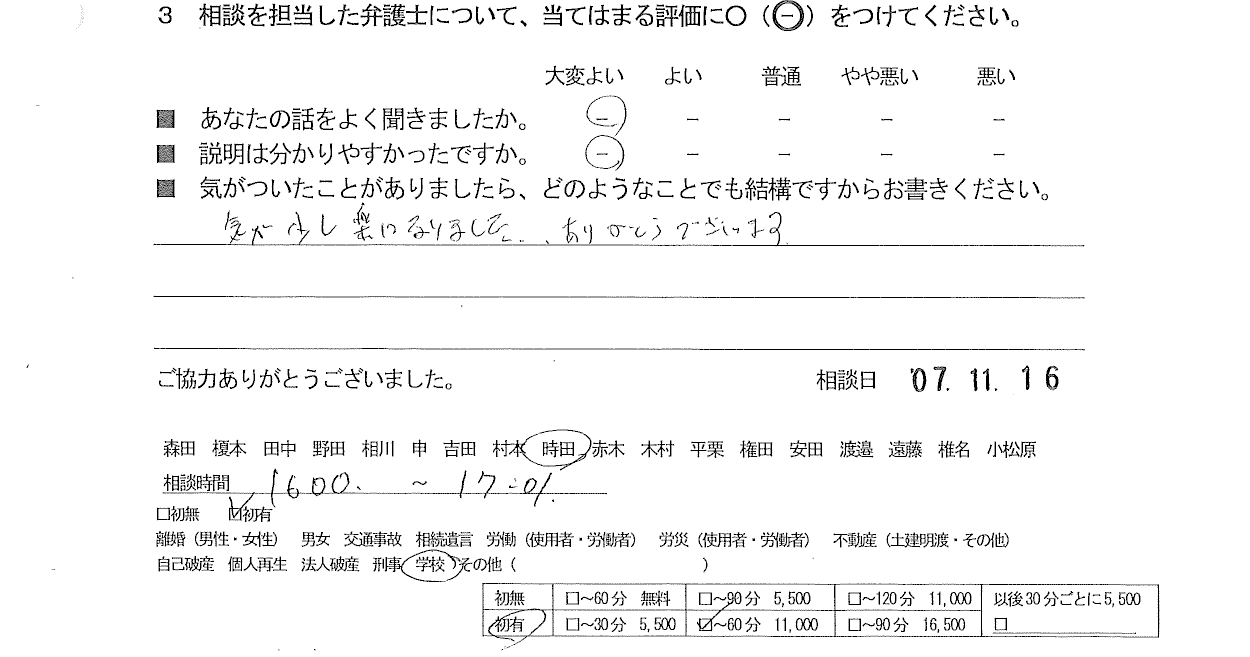 3 相談を担当した弁護士について、当てはまる評価に○（㊀）をつけてください。
大変よい よい 普通 やや悪い 悪い
■ あなたの話をよく聞きましたか。 － － － － －
■ 説明は分かりやすかったですか。 － － － － －
■ 気がついたことがありましたら、どのようなことでも結構ですからお書きください。
気が少し楽になりました、ありがとうございます
ご協力ありがとうございました。 相談日 '07.11.16
森田 榎本 田中 野田 相川 申 吉田 村本 時田 赤木 木村 平栗 権田 安田 渡邉 遠藤 椎名 小松原
相談時間 1600. ～ 17:01.
□初無 ☑初有
離婚（男性・女性） 男女 交通事故 相続遺言 労働（使用者・労働者） 労災（使用者・労働者） 不動産（土建明渡・その他）
自己破産 個人再生 法人破産 刑事 学校 その他（ ）
初無 □～60分 無料 □～90分 5,500 □～120分 11,000 以後30分ごとに5,500
初有 □～30分 5,500 ☑～60分 11,000 □～90分 16,500 □